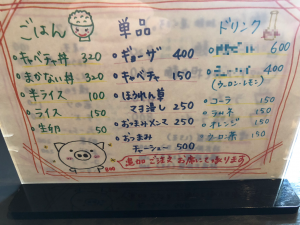 ごはん
・キャベチャ丼 320
・まかない丼 320
・半ライス 100
・ライス 150
・生卵 50
単品
・ギョーザ 400
・キャベチャ 150
・ほうれん草
ゴマ浸し 250
・おつまみメンマ 250
・おつまみ
チャーシュー 500
ドリンク
600
400
(ウーロン・レモン)
・コーラ 150
・ラムネ 150
・オレンジ 150
・ウーロン茶 150
追加ご注文 お席にて承ります